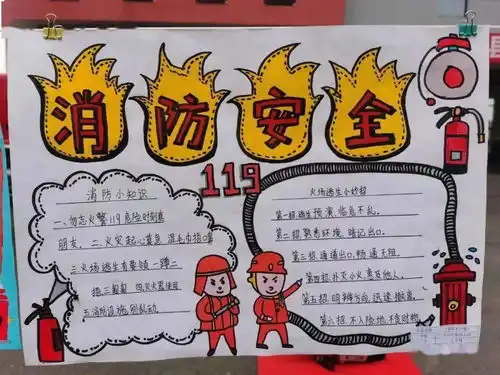 消防安全
119
消防小知识
一、勿忘火警119危险时刻真
朋友、二、火灾起心莫急 湿毛巾捂口鼻
三火场逃生有要领一蹲二
捂三匍匐 四.灭火器使用
五消防设施别乱动
火场逃生小妙招
第一招逃生预演,临危不乱。
第二招.熟悉环境 暗记出口.
第三招.通道出口,畅通无阻.
第四招.扑灭小火,惠及他人.
第五招.明辨方向,迅速撤离.
第六招.不入险地,不贪财物.